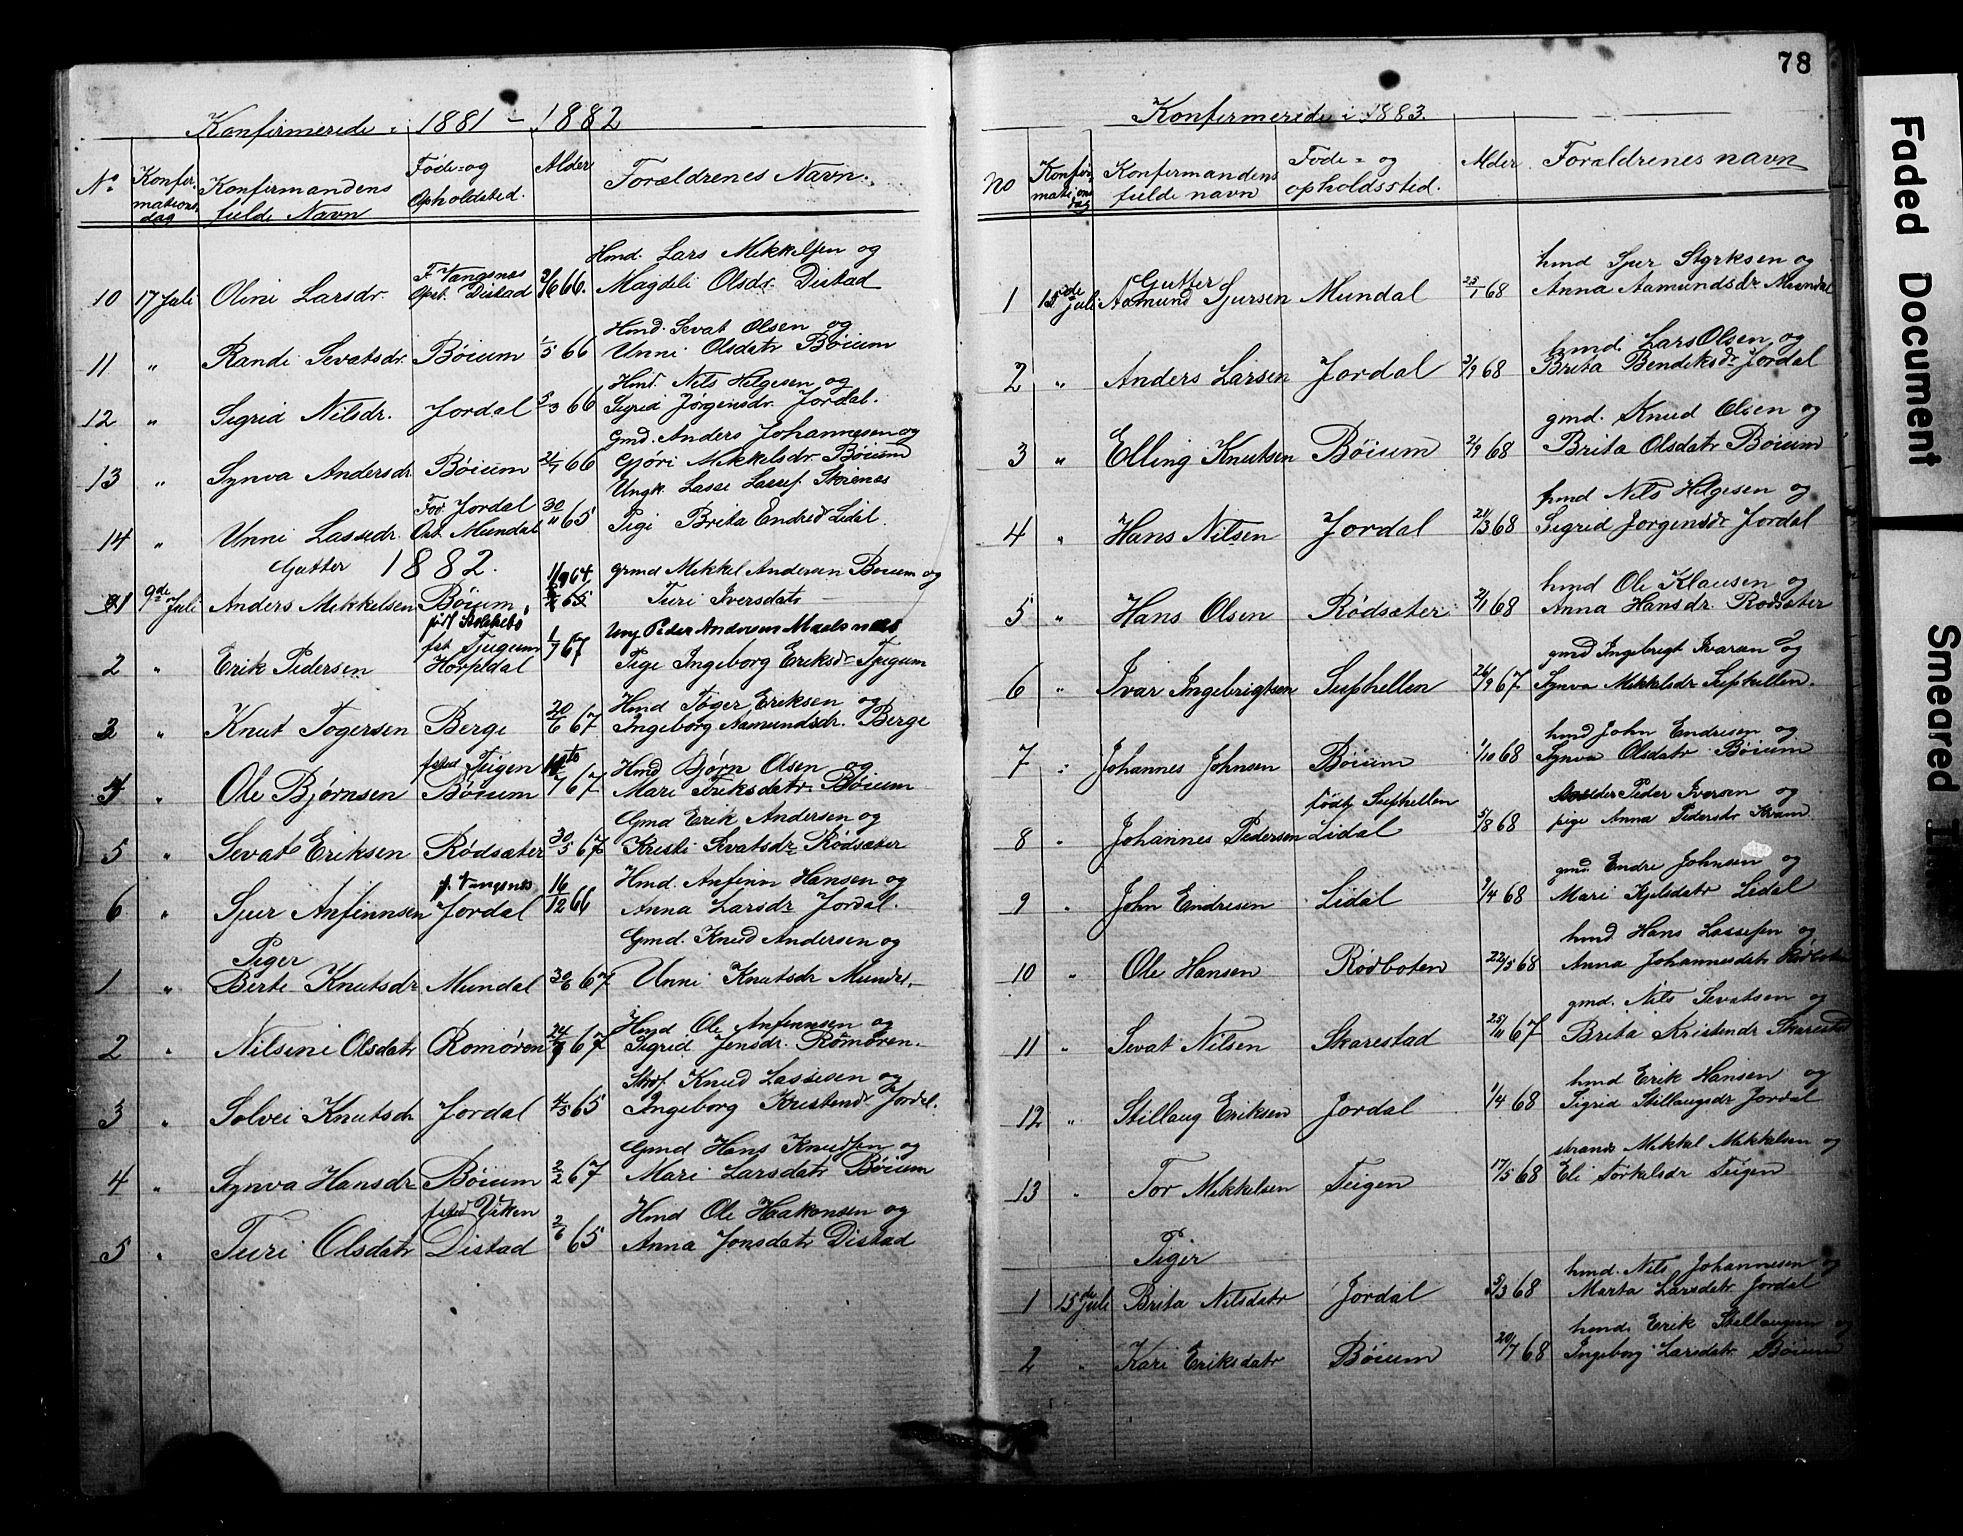 Konfirmerede i 1881 – 1882
No Konfirmationsdag Konfirmandens fulde Navn Føde= og Opholdsted. Alder Forældrenes Navn.
10 17 Juli Olini Larsdr. F. Vangsnæs Opst. Distad 66. Hmd. Lars Mikkelsen og Magdeli Olsdr. Distad
11 " Randi Sevatsdr. Bøium 1/5 66 Hmd. Sevat Olsen og Unni Olsdatr Bøium
12 " Sigrid Nilsdr. Jordal 5/3 66 Hmd. Nils Helgesen og Sigrid Jørgensdr. Jordal.
13 " Synva Andersdr Bøium 66 Gmd. Anders Johannesen og Gjøri Mikkelsdr Bøium
14 " Unni Lassedr. Fød. Jordal Ops. Mundal 30/11 65 Ungk. Lasse Lasses. Pige Brita Endresd Lidal.
Gutter 1882.
1 9de Juli Anders Mikkelsen Bøium, 11/9 64 gmd Mikkel Andersen Bøium og Turi Iversdatr
2 " Erik Pedersen fst Tjugum 1/7 67 Ung Peder Andersen Pige Ingeborg Eriksdr Tjugum
3 " Knut Togersen Berge 20/6 67 Hmd Toger Eriksen og Ingeborg Aamundsdr. Berge
4 " Ole Bjørnsen fsted Teigen Bøium 7 67 Hmd Bjørn Olsen og Mari Eriksdatr Bøium
5 " Sevat Eriksen Rødsæter 30/5 67 Gmd Erik Andersen og Kristi Sevatsdr Rødsæter
6 " Sjur Anfinnsen f. Vangsnæs Jordal 16/12 66 Hmd. Anfinn Hansen og Anna Larsdr Jordal.
Piger
1 " Berte Knutsdr Mundal 30/6 67 Gmd. Knud Andersen og Unni Knutsdr Mundal
2 " Nilsine Olsdatr Romøren 67 Hmd Ole Anfinnsen og Sigrid Jensdr. Romøren.
3 " Solvei Knutsdr Jordal 4/5 65 Knud Lassesen og Ingeborg Kristensdr Jordal.
4 " Synva Hansdr Bøium 2/2 67 Gmd Hans Knudsen og Mari Larsdatr Bøium
5 " Turi Olsdatr fsted Viken Distad 2/6 65 Hmd Ole Haakonsen og Anna Jonsdatr Distad
78
Konfermerede i 1883.
No Konfirmationsdag Konfirmandens fulde navn Føde= og opholdssted. Alder Forældrenes navn
Gutter
1 15de juli Aamund Sjursen Mundal 23/1 68 hmd Sjur Styrksen og Anna Aamundsdr Mundal
2 " Anders Larsen Jordal 2/9 68 hmd. Lars Olsen og Brita Bendiksdr Jordal
3 " Elling Knutsen Bøium 2/9 68 gmd. Knud Olsen og Brita Olsdatr Bøium
4 " Hans Nilsen Jordal 21/3 68 hmd Nils Helgesen og Sigrid Jorgensdr Jordal
5 " Hans Olsen Rødsæter 68 hmd Ole Klausen og Anna Hansdr. Rødsæter
6 " Ivar Ingebrigtsen Suphellen 26/9 67. gmd Ingebrigt Ivarsen og Synva Mikkelsdr Suphellen.
7 " Johannes Johnsen Bøium 1/10 68 hmd John Endresen og Synva Olsdatr Bøium
8 " Johannes Pedersen født Suphellen Lidal 5/8 68 Peder Iversen og pige Anna Pedersdr Kvam
9 " John Endresen Lidal 9/4 68 gmd. Endre Johnsen og Mari Kjelsdatr Lidal
10 " Ole Hansen Rødboten 22/5 68 hmd. Hans Lassesen og Anna Johannesdatr Rødboten
11 " Sevat Nilsen Skarestad 25/11 67 gmd. Nils Sevatsen og Brita Kristensdr Skarestad
12 " Stillaug Eriksen Jordal 1/4 68 hmd Erik Hansen og Sigrid Stillaugsdr Jordal
13 " Tor Mikkelsen Teigen 17/5 68 strands Mikkel Mikkelsen og Eli Torkelsdr Teigen
Piger
1 15de juli Brita Nilsdatr Jordal 5/3 68 hmd. Nils Johannesen og Marta Larsdatr Jordal
2 " Kari Eriksdatr Bøium 20/7 68 hmd. Erik Stillaugsen og Ingeborg Larsdatr Bøium
Faded Document
Smeared